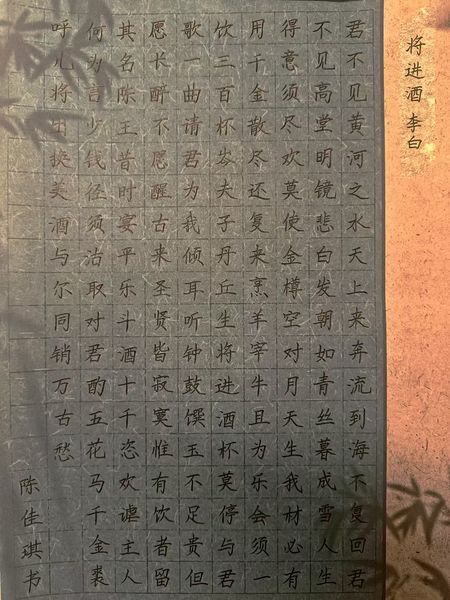 将进酒 李白
君不见黄河之水天上来奔流到海不复回君
不见高堂明镜悲白发朝如青丝暮成雪人生
得意须尽欢莫使金樽空对月天生我材必有
用千金散尽还复来烹羊宰牛且为乐会须一
饮三百杯岑夫子丹丘生将进酒杯莫停与君
歌一曲请君为我倾耳听钟鼓馔玉不足贵但
愿长醉不愿醒古来圣贤皆寂寞惟有饮者留
其名陈王昔时宴平乐斗酒十千恣欢谑主人
何为言少钱径须沽取对君酌五花马千金裘
呼儿将出换美酒与尔同销万古愁
陈佳琪书